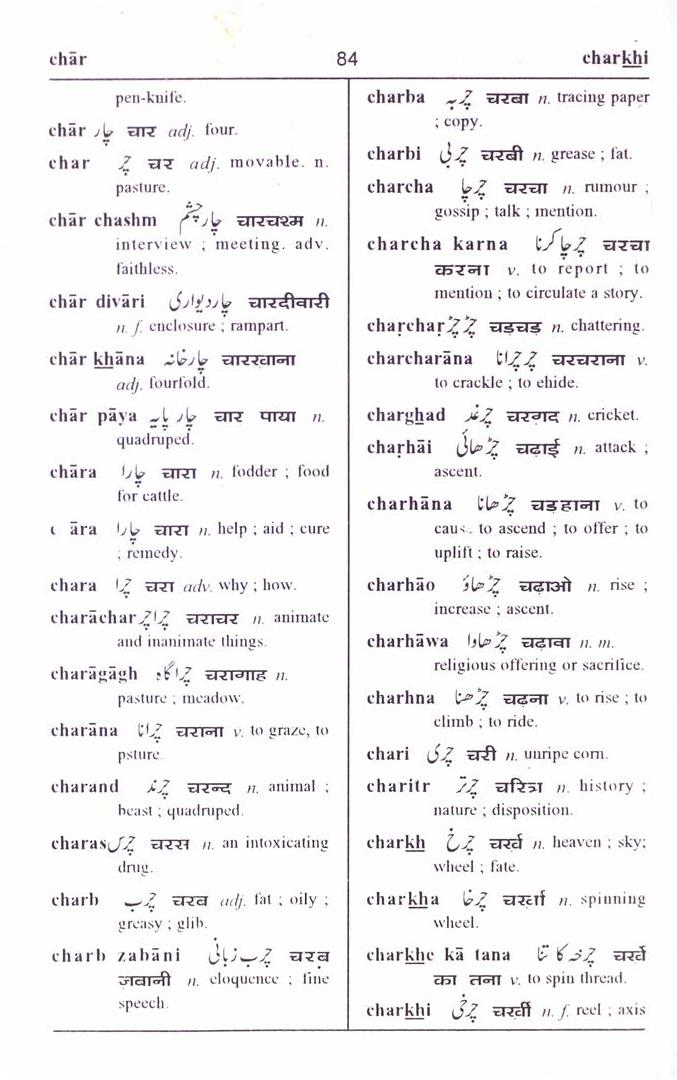 chār 84 charkhi
pen-knife.
chār چار चार adj. four.
char چر चर adj. movable. n.
pasture.
chār chashm چار چشم चारचश्म n.
interview ; meeting. adv.
faithless.
chār divāri چار دیواری चारदीवारी
n. f. enclosure ; rampart.
chār khāna چار خانہ चारखाना
adj. fourfold.
chār pāya چار پایہ चार पाया n.
quadruped.
chāra چارا चारा n. fodder ; food
for cattle.
āra چارا चारा n. help ; aid ; cure
; remedy.
chara چرا चरा adv. why ; how.
charāchar چراچر चराचर n. animate
and inanimate things.
charāgāgh چراگاہ चरागाह n.
pasture ; meadow.
charāna چرانا चराना v. to graze, to
psture.
charand چرند चरन्द n. animal ;
beast ; quadruped.
charas چرس चरस n. an intoxicating
drug.
charb چرب चरब adj. fat ; oily ;
greasy ; glib.
charb zabāni چرب زبانی चरब
ज़बानी n. eloquence ; fine
speech.
charba چربہ चरबा n. tracing paper
; copy.
charbi چربی चरबी n. grease ; fat.
charcha چرچا चरचा n. rumour ;
gossip ; talk ; mention.
charcha karna چرچا کرنا चरचा
करना v. to report ; to
mention ; to circulate a story.
chaṛchaṛ چڑچڑ चड़चड़ n. chattering.
charcharāna چرچرانا चरचराना v.
to crackle ; to ehide.
charghad چرغد चरगद n. cricket.
chaṛhāi چڑھائی चढ़ाई n. attack ;
ascent.
charhāna چڑھانا चड़हाना v. to
caus. to ascend ; to offer ; to
uplift ; to raise.
charhāo چڑھاؤ चढ़ाओ n. rise ;
increase ; ascent.
charhāwa چڑھاوا चढ़ावा n. m.
religious offering or sacrifice.
charhna چڑھنا चढ़ना v. to rise ; to
climb ; to ride.
chari چری चरी n. unripe corn.
charitr چرتر चरित्र n. history ;
nature ; disposition.
charkh چرخ चर्ख n. heaven ; sky;
wheel ; fate.
charkha چرخا चर्खा n. spinning
wheel.
charkhe kā tana چرخہ کا تنا चर्खे
का तना v. to spin thread.
charkhi چرخی चर्खी n. f. reel ; axis